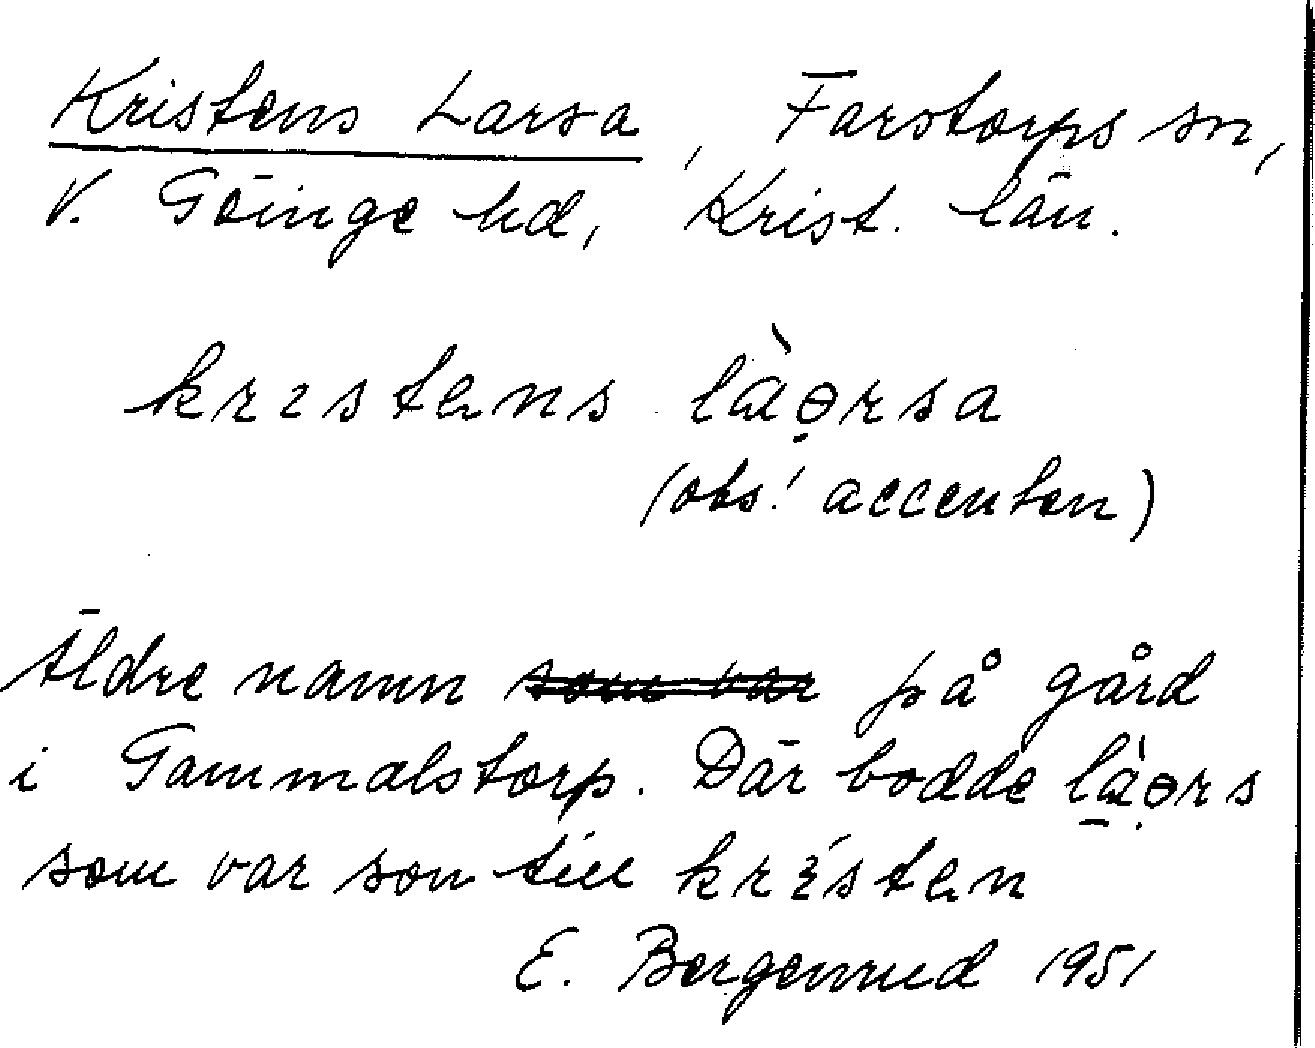 Kristens Larsa, Farstorps sn,
V. Göinge hd, Krist. län.
krɩstens làərsa
(obs! accenten)
Äldre namn ~~som var~~ på gård
i Gammalstorp. Där bodde làərs
som var son till krɩ́sten
E. Bergenrud 1951